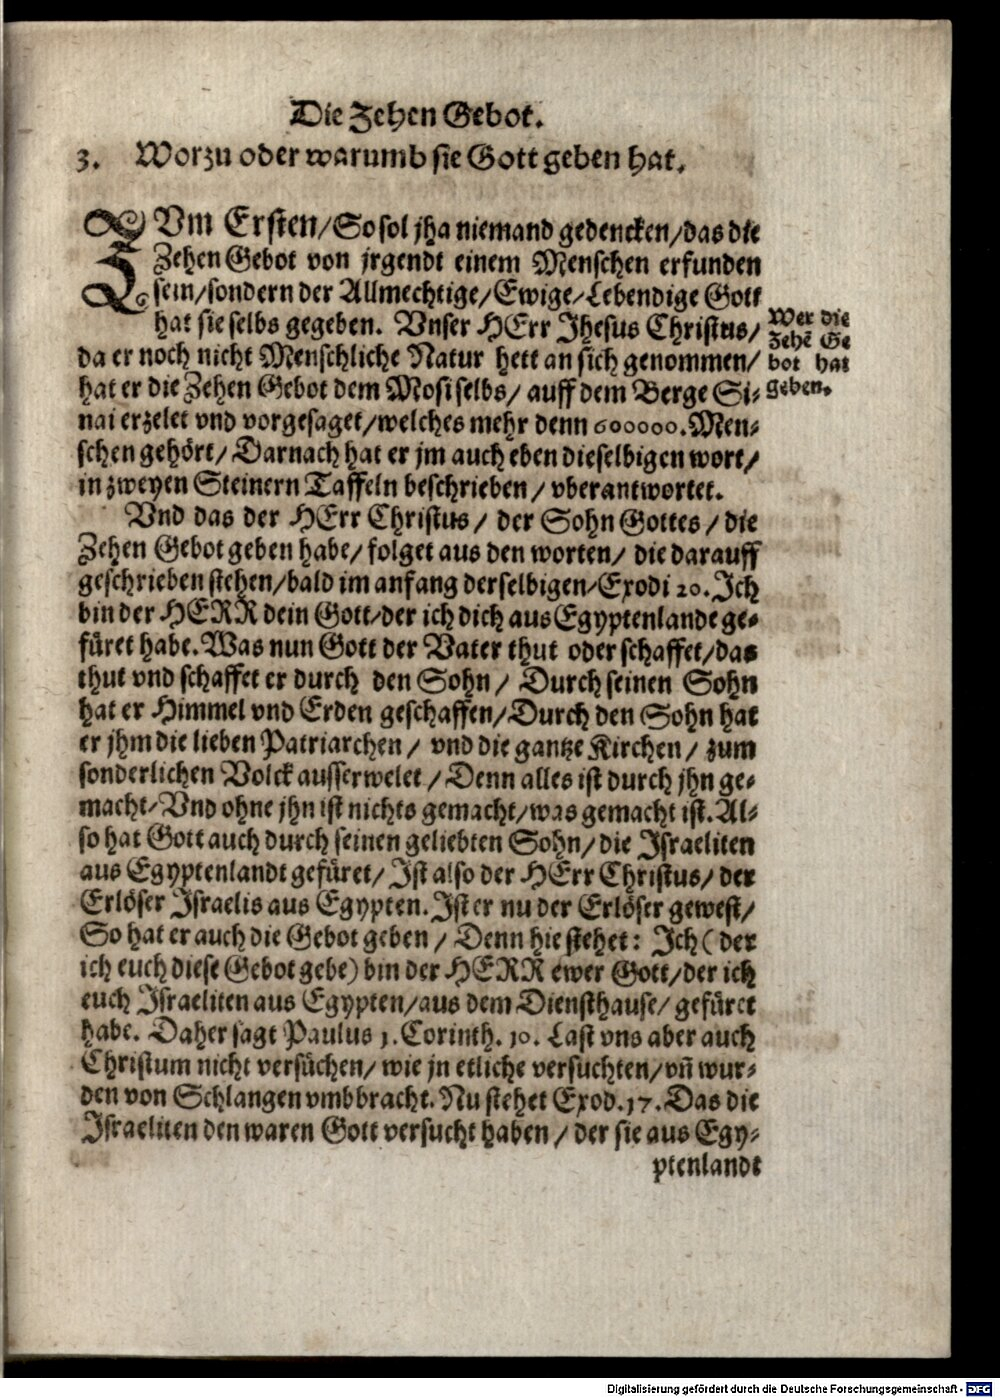 Die Zehen Gebot.
3. Worzu oder warumb sie Gott geben hat.
ZVm Ersten/So sol jha niemand gedencken/das die
Zehen Gebot von jrgendt einem Menschen erfunden
sein/sondern der Allmechtige/Ewige/Lebendige Gott
hat sie selbs gegeben. Vnser HErr Jhesus Christus/
da er noch nicht Menschliche Natur hett an sich genommen/
hat er die Zehen Gebot dem Mosi selbs/ auff dem Berge Si-
nai erzelet vnd vorgesaget/welches mehr denn 600000. Men-
schen gehört/ Darnach hat er jm auch eben dieselbigen wort/
in zweyen Steinern Taffeln beschrieben / vberantwortet.
Wer die
Zehẽ Ge
bot hat
geben.
Vnd das der HErr Christus/ der Sohn Gottes/ die
Zehen Gebot geben habe/ folget aus den worten/ die darauff
geschrieben stehen/bald im anfang derselbigen/Exodi 20. Ich
bin der HERR dein Gott/der ich dich aus Egyptenlande ge-
füret habe. Was nun Gott der Vater thut oder schaffet/das
thut vnd schaffet er durch den Sohn/ Durch seinen Sohn
hat er Himmel vnd Erden geschaffen/Durch den Sohn hat
er jhm die lieben Patriarchen / vnd die gantze Kirchen/ zum
sonderlichen Volck ausserwelet / Denn alles ist durch jhn ge-
macht/Vnd ohne jhn ist nichts gemacht/was gemacht ist. Al-
so hat Gott auch durch seinen geliebten Sohn/ die Israeliten
aus Egyptenlandt gefüret/ Ist also der HErr Christus/ der
Erlöser Israelis aus Egypten. Ist er nu der Erlöser gewest/
So hat er auch die Gebot geben / Denn hie stehet: Ich ( der
ich euch diese Gebot gebe) bin der HERR ewer Gott/der ich
euch Israeliten aus Egypten/aus dem Diensthause/ gefüret
habe. Daher sagt Paulus 1. Corinth. 10. Last vns aber auch
Christum nicht versüchen/ wie jn etliche versuchten/vñ wur-
den von Schlangen vmbbracht. Nu stehet Exod. 17. Das die
Israeliten den waren Gott versucht haben / der sie aus Egy-
ptenlandt
Digitalisierung gefördert durch die Deutsche Forschungsgemeinschaft - DFG